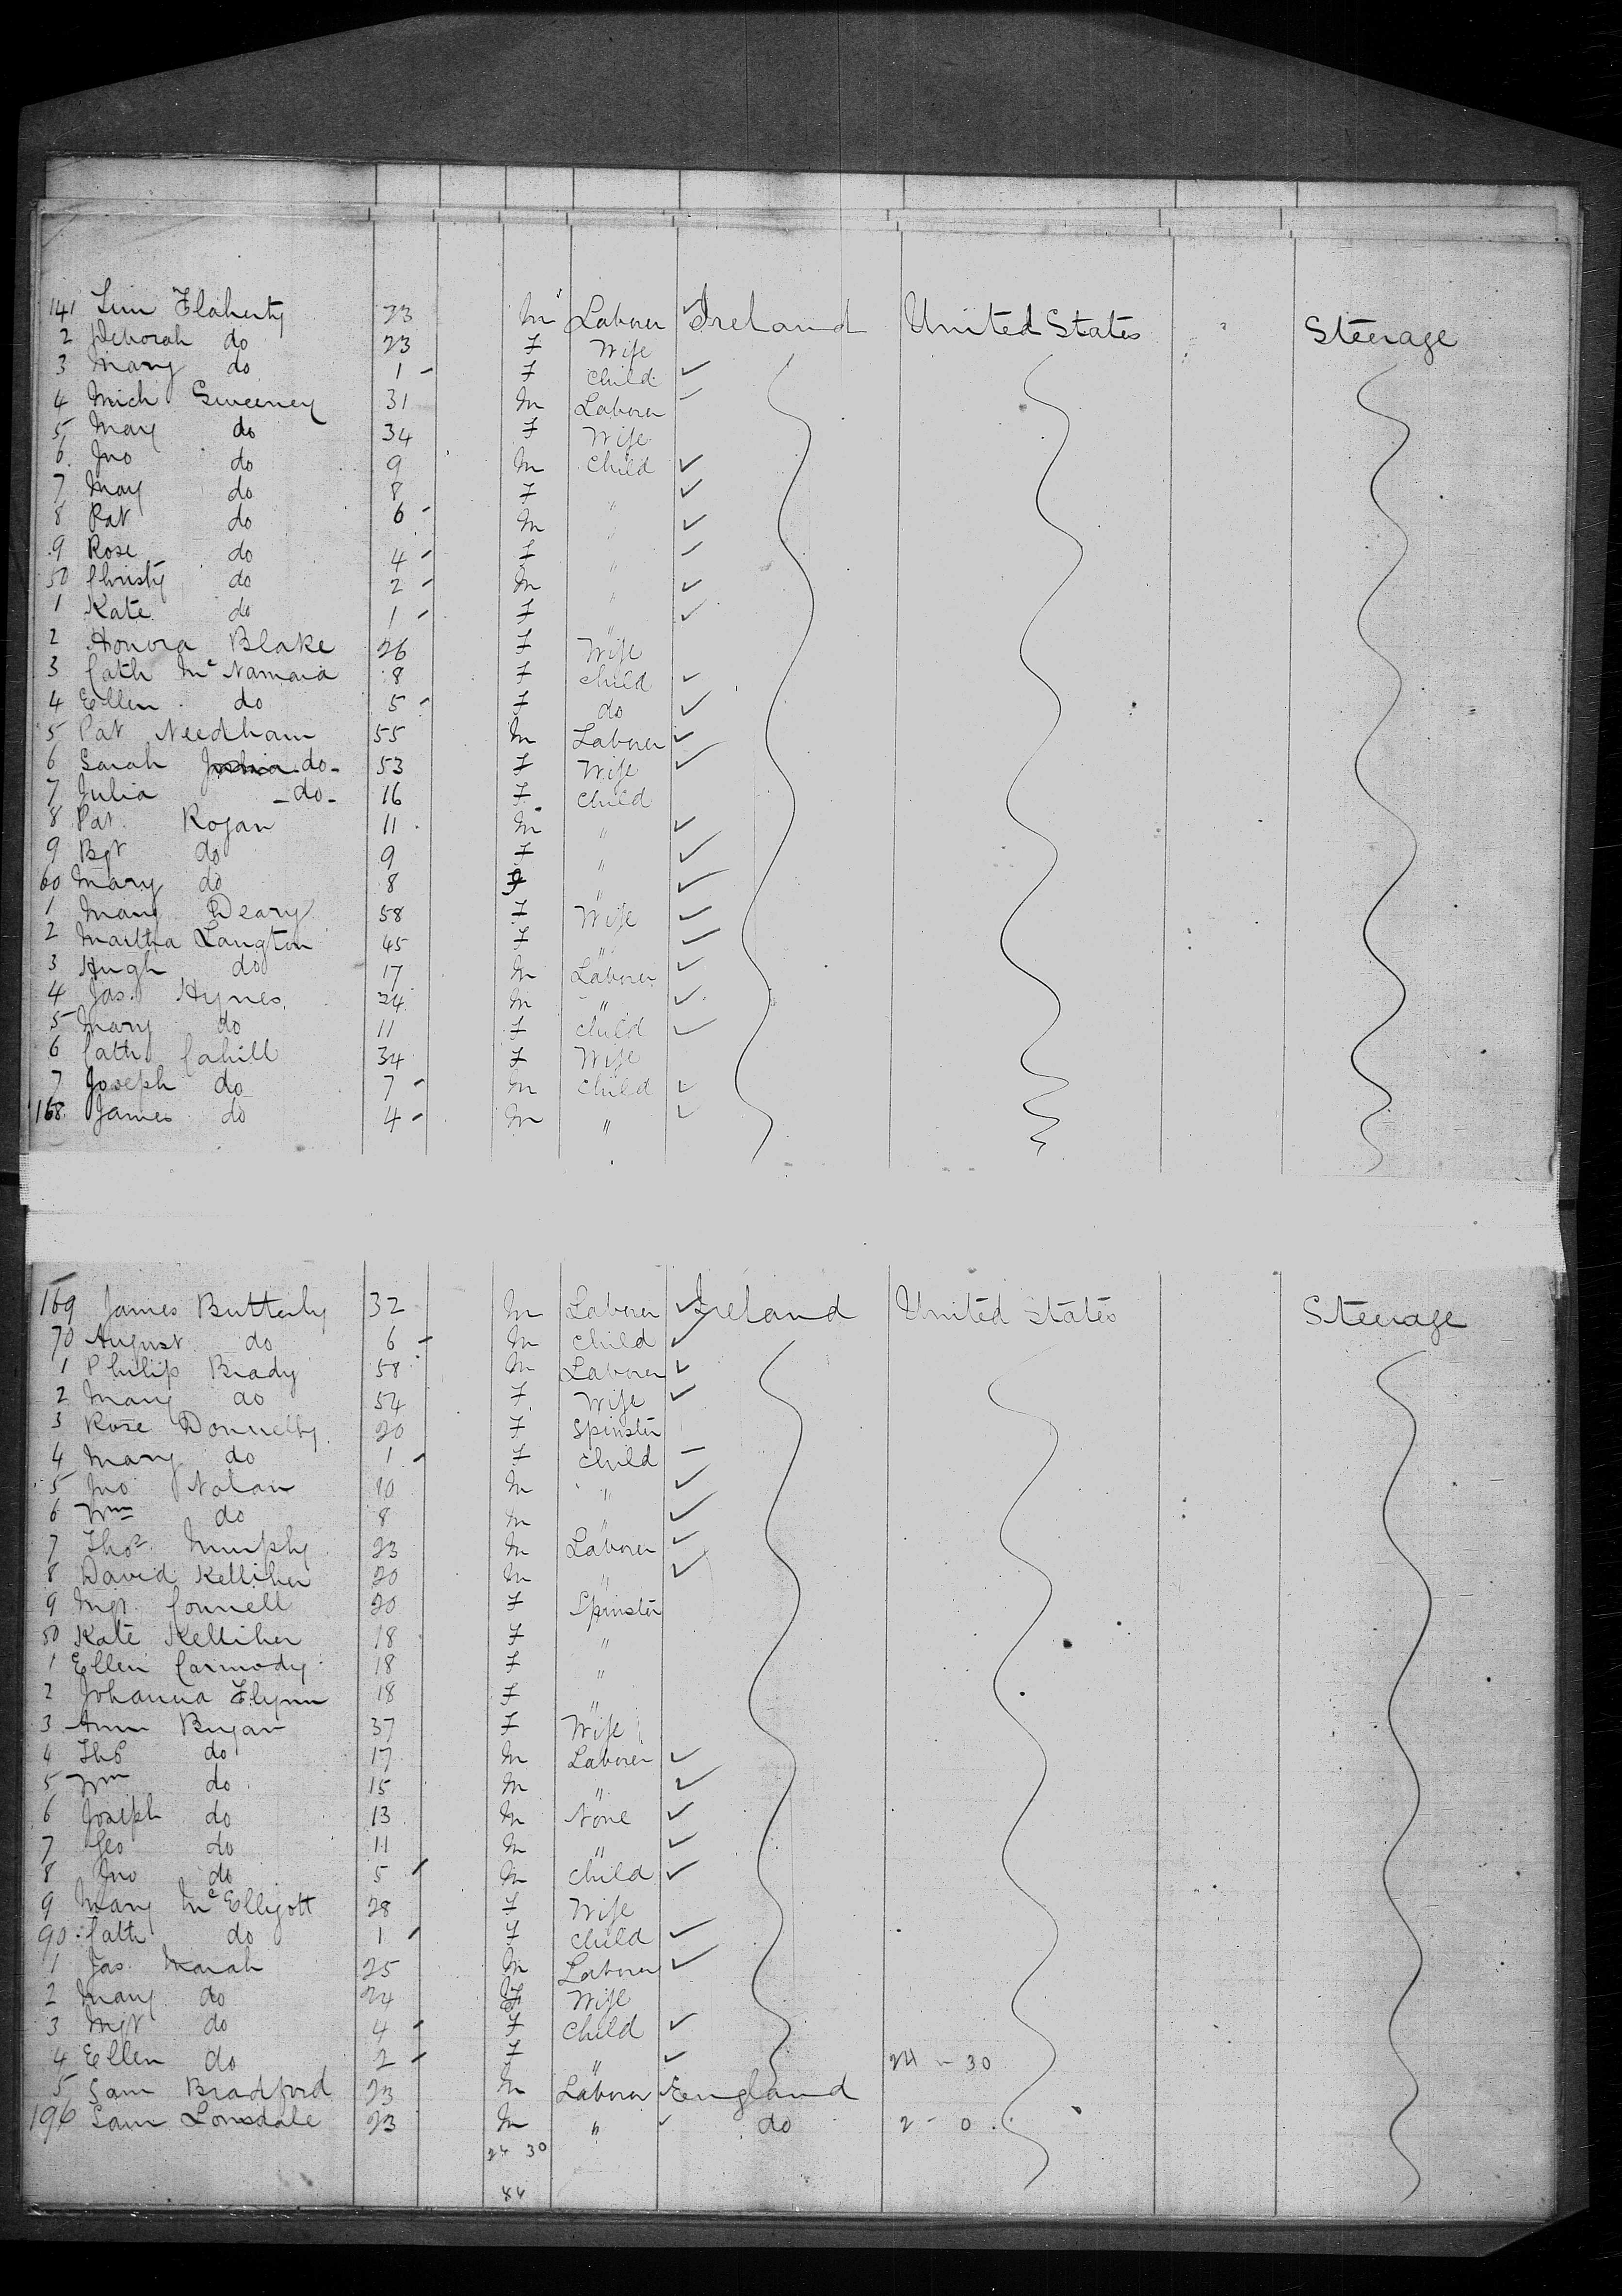 141 Tim Flaherty 23 M Laborer Ireland United States Steerage
2 Deborah do 23 F Wife
3 Mary do 1 F Child
4 Mich Sweeney 31 M Laborer
5 Mary do 34 F Wife
6 Jno do 9 M Child
7 May do 8 F "
8 Pat do 6 M "
9 Rose do 4 F "
50 Christy do 2 M "
1 Kate do 1 F "
2 Honora Blake 26 F Wife
3 Cath McNamara 8 F Child
4 Ellen do 5 F do
5 Pat Needham 55 M Laborer
6 Sarah do 53 F Wife
7 Julia do 16 F Child
8 Pat Rogan 11 M "
9 Bgt do 9 F "
60 Mary do 8 F "
1 Mary Deary 58 F Wife
2 Martha Langton 45 F "
3 Hugh do 17 M Laborer
4 Jas. Hynes 24 M "
5 Mary do 11 F Child
6 Cath Cahill 34 F Wife
7 Joseph do 7 M Child
168 James do 4 M "
169 James Butterly 32 M Laborer Ireland United States Steerage
70 August do 6 M Child
1 Philip Brady 58 M Laborer
2 Mary do 54 F Wife
3 Rose Donnelly 20 F Spinster
4 Mary do 1 F Child
5 Jno Nolan 10 M "
6 Wm do 8 M "
7 Thos Murphy 23 M Laborer
8 David Kelliher 20 M "
9 Mgt. Connell 20 F Spinster
80 Kate Kelliher 18 F "
1 Ellen Carmody 18 F "
2 Johanna Flynn 18 F "
3 Ann Bryan 37 F Wife
4 Thos do 17 M Laborer
5 Wm do 15 M "
6 Joseph do 13 M None
7 Geo do 11 M "
8 Jno do 5 M Child
9 Mary McElligott 28 F Wife
90 Cath do 1 F Child
1 Jas. Marah 25 M Laborer
2 Mary do 24 F Wife
3 Mgt do 4 F Child
4 Ellen do 2 F " 24 - 30
5 Sam Bradford 23 M Laborer England
196 Sam Lonsdale 23 M " do 2 - 0
24 30